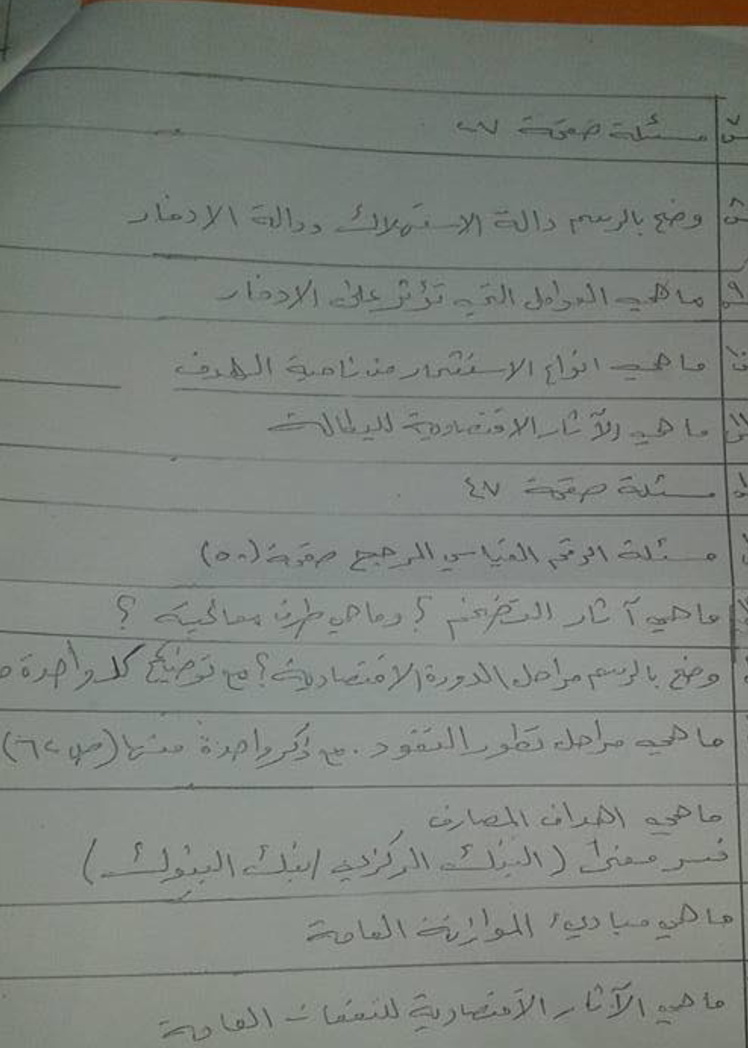 مسئلة صفحة ٢٧
وضح بالرسم دالة الاستهلاك ودالة الادخار
ماهي العوامل التي تؤثر على الادخار
ماهي انواع الاستثمار من ناحية الهدف
ما هي الآثار الاقتصادية للبطالة
مسئلة صفحة ٤٧
مسئلة الرقم القياسي المرجح صفحة (٥٠)
ماهي آثار التضخم ؟ وماهي طرق معالجته ؟
وضح بالرسم مراحل الدورة الاقتصادية ؟ مع توضيح كل واحدة
ماهي مراحل تطور النقود . مع ذكر واحدة منها (ص ٦٢)
ماهي اهداف المصارف
فسر معنى ( البنك المركزي / بنك البنوك )
ماهي مبادئ الموازنة العامة
ماهي الآثار الاقتصادية للنفقات العامة